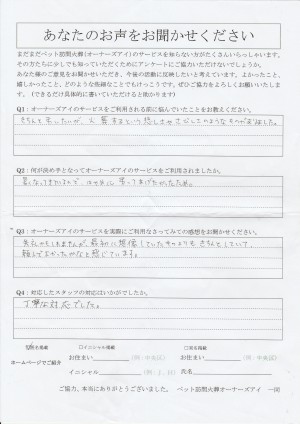 あなたのお声をお聞かせください
まだまだペット訪問火葬(オーナーズアイ)のサービスを知らない方がたくさんいらっしゃいます。
その方たちに少しでも知っていただくためにアンケートにご協力いただけないでしょうか。
あなた様のご意見をお聞かせいただき、今後の活動に反映したいと考えています。よかったこと、
嬉しかったこと、どのような些細なことでもけっこうです。ぜひご協力をよろしくお願いいたします。
(できるだけ具体的に書いていただけると助かります)
Q1:オーナーズアイのサービスをご利用される前に悩んでいたことをお教えください。
きちんと弔いたいが、火葬するという悲しさや
Q2:何が決め手となってオーナーズアイのサービスをご利用されましたか。
暑くなってきていたので、はやめに弔ってあげたかったため。
Q3:オーナーズアイのサービスを実際にご利用なさってみての感想をお聞かせください。
失礼かもしれませんが、最初に想像していたものよりもきちんとしていて、
頼んでよかったかなと感じています。
Q4:対応したスタッフの対応はいかがでしたか。
丁寧な対応でした。
匿名掲載 □イニシャル掲載 □実名掲載
ホームページでご紹介
お住まい (例:中央区) お住まい (例:中央区)
イニシャル (例:T.H) 氏名
ご協力、本当にありがとうございました。 ペット訪問火葬オーナーズアイ 一同